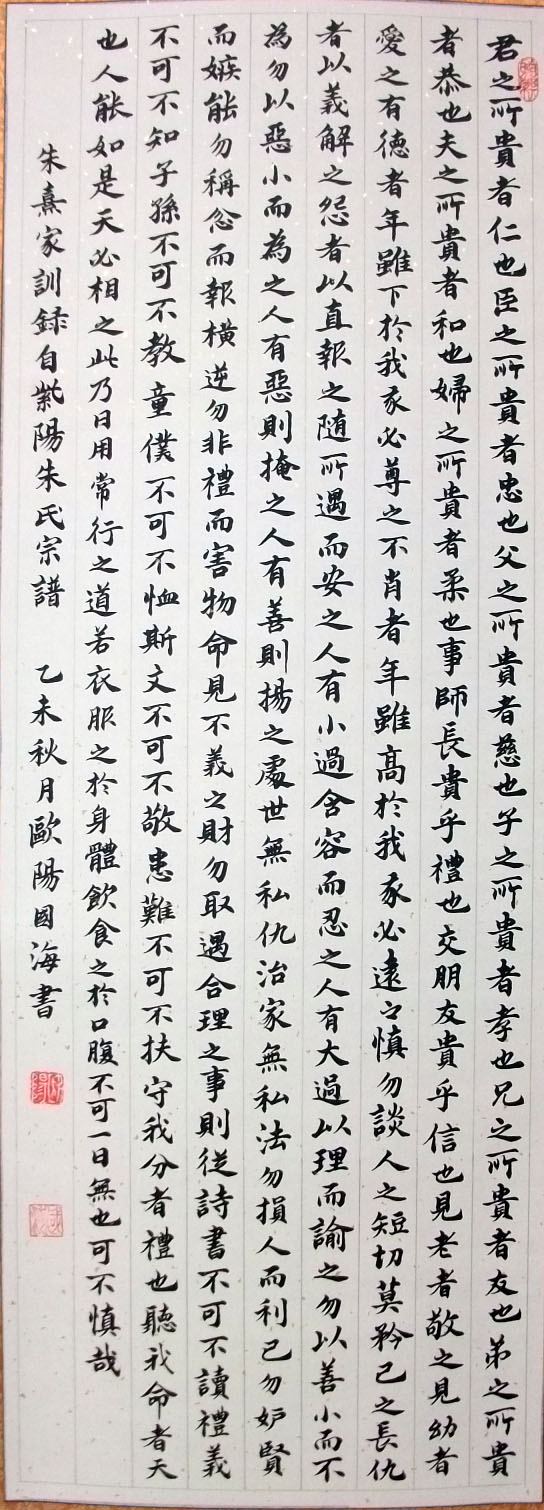 君之所貴者仁也臣之所貴者忠也父之所貴者慈也子之所貴者孝也兄之所貴者友也弟之所貴
者恭也夫之所貴者和也婦之所貴者柔也事師長貴乎禮也交朋友貴乎信也見老者敬之見幼者
愛之有德者年雖下於我我必尊之不肖者年雖高於我我必遠之慎勿談人之短切莫矜己之長仇
者以義解之怨者以直報之随所遇而安之人有小過含容而忍之人有大過以理而諭之勿以善小而不
為勿以惡小而為之人有惡則掩之人有善則揚之處世無私仇治家無私法勿損人而利己勿妒賢
而嫉能勿稱忿而報橫逆勿非禮而害物命見不義之財勿取遇合理之事則從詩書不可不讀禮義
不可不知子孫不可不教童僕不可不恤斯文不可不敬患難不可不扶守我分者禮也聽我命者天
也人能如是天必相之此乃日用常行之道若衣服之於身體飲食之於口腹不可一日無也可不慎哉
朱熹家訓録自紫陽朱氏宗譜 乙未秋月歐陽國海書